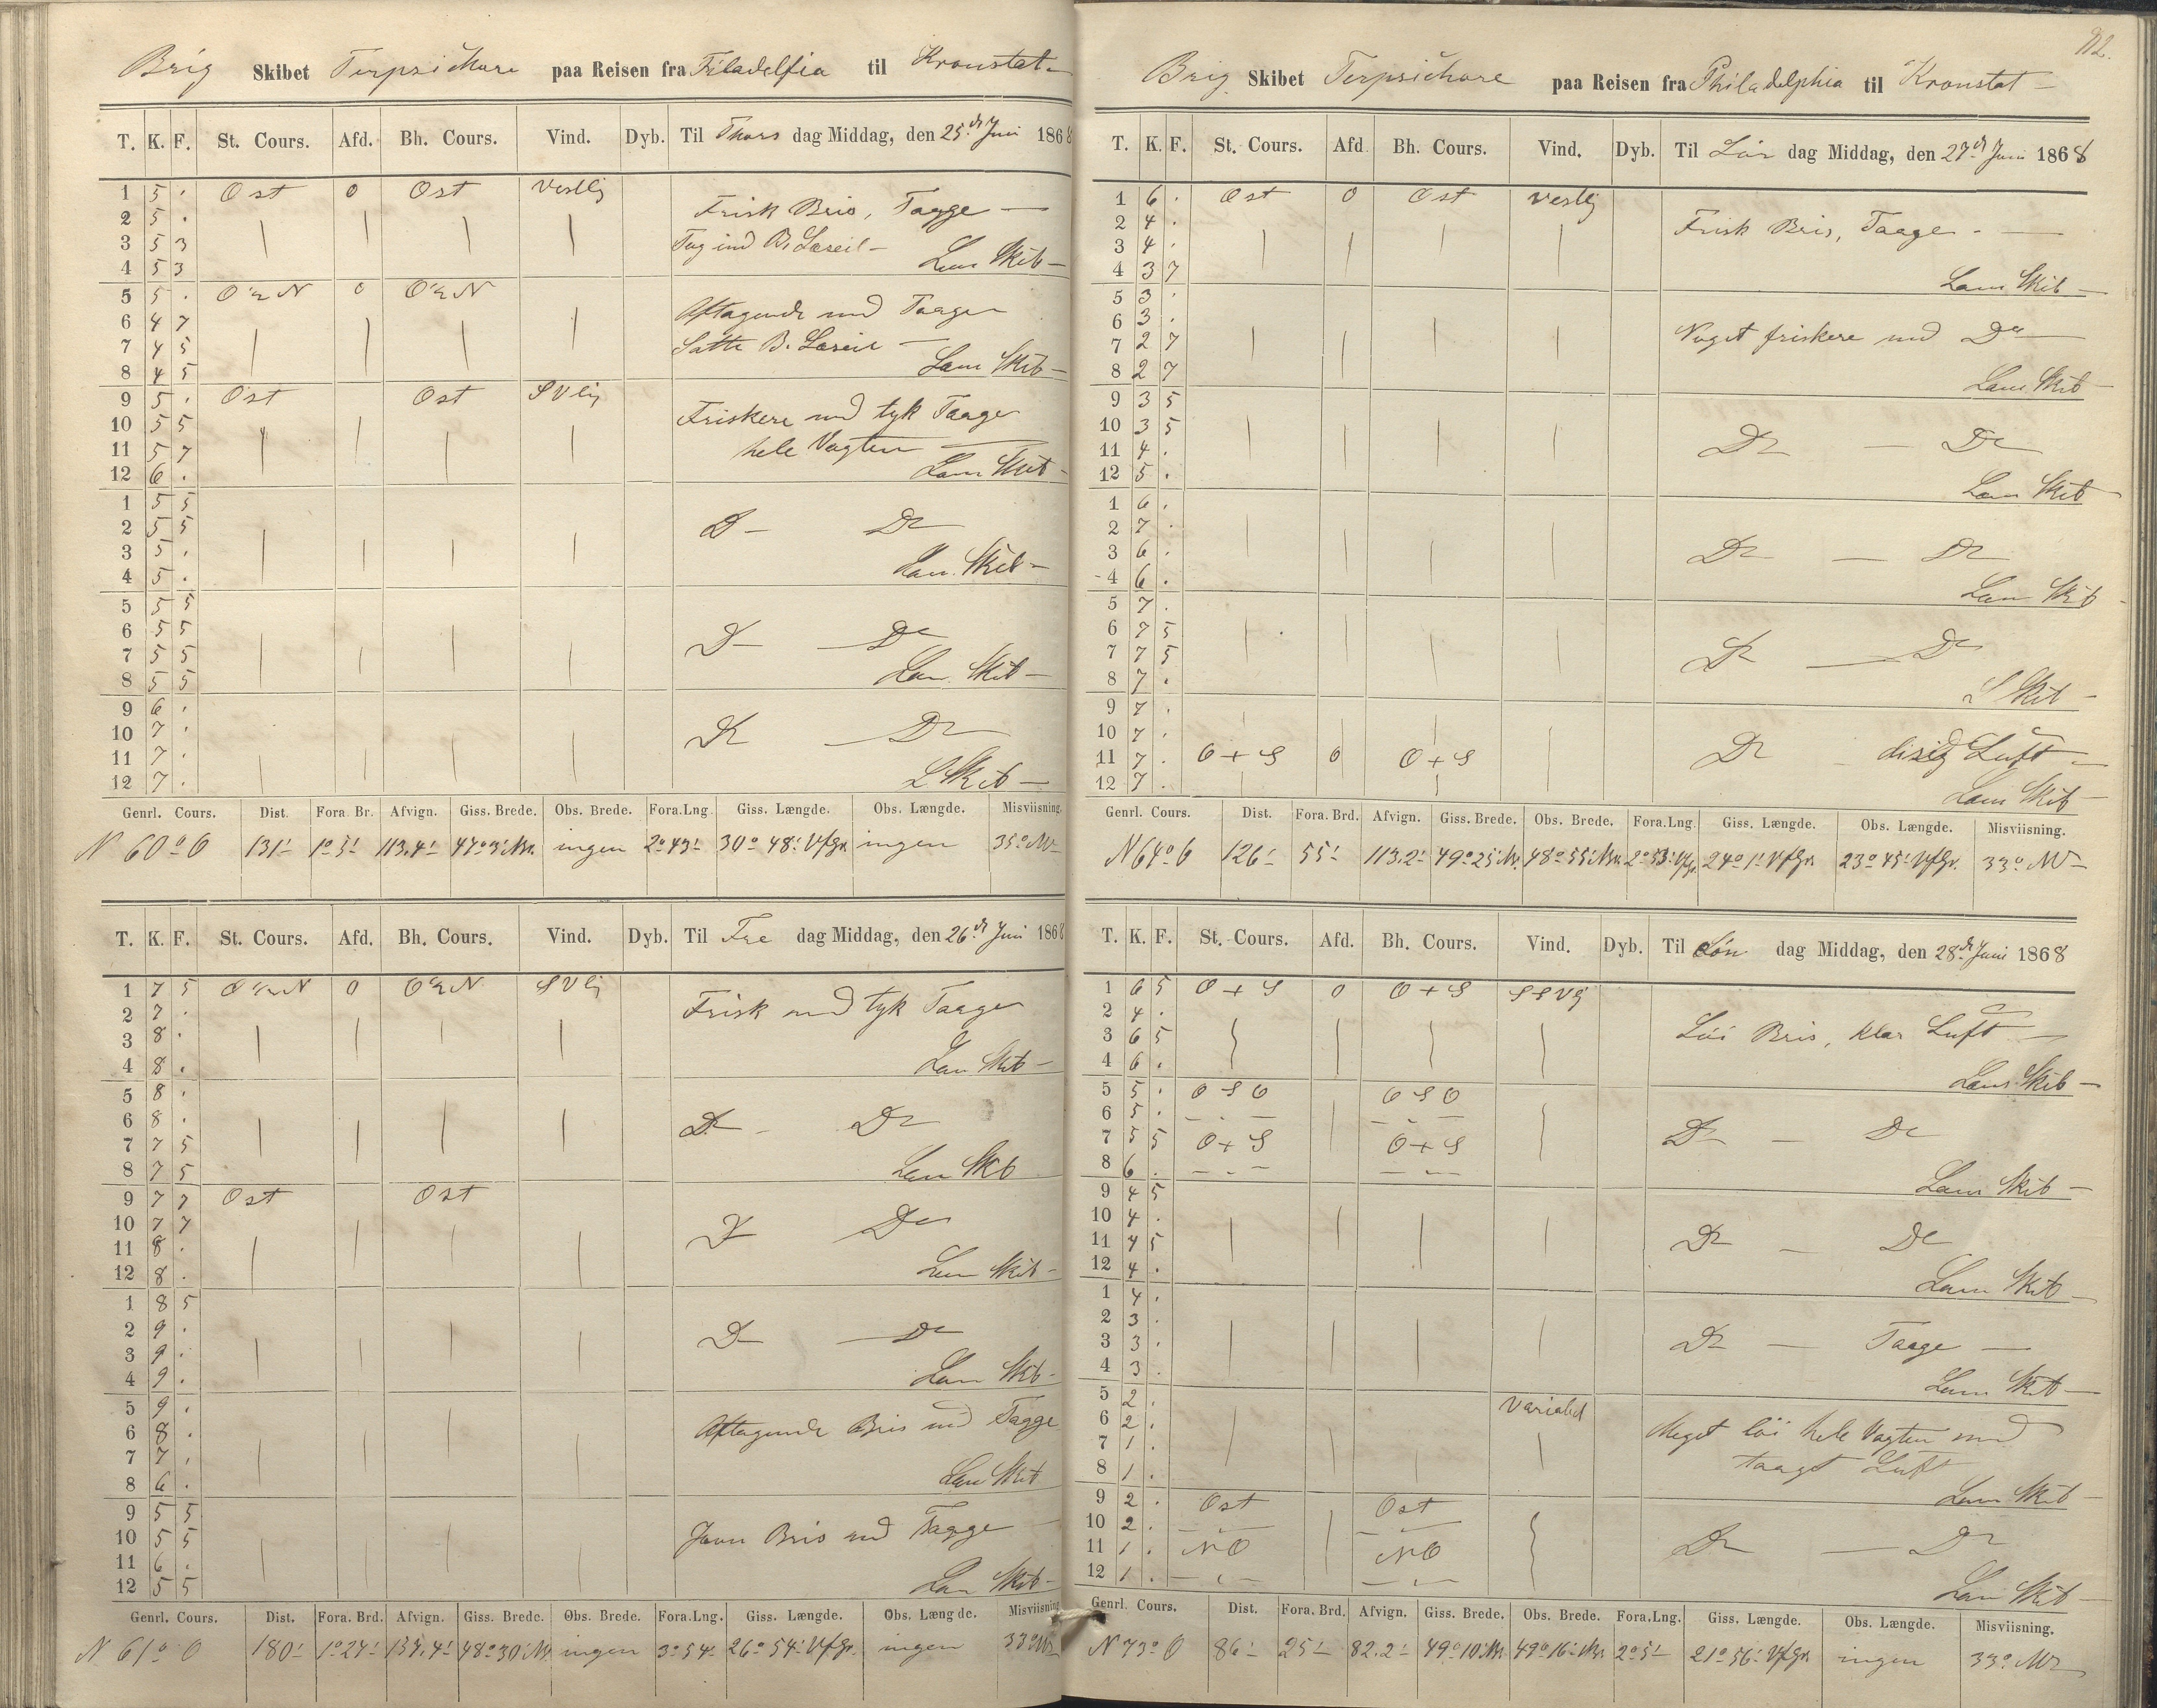 Brig Skibet Terpsichore paa Reisen fra Filadelfia til Kronstat
T. K. F. St. Cours. Afd. Bh. Cours. Vind. Dyb. Til Thors dag Middag, den 25de Juni 1868
1 5 . Ost 0 Ost Vestlig
2 5 . Frisk Bris, Taage
3 5 3 Tog ind B. Læseil
4 5 3 Læns Skib
5 5 . O½N 0 O½N
6 4 7 Aftagende med Taage
7 4 5 Satte B. Læseil
8 4 5 Læns Skib
9 5 . Ost Ost SVlig
10 5 5 Friskere med tyk Taage
11 5 7 hele Vagten
12 6 . Læns Skib
1 5 5
2 5 5 Do Do
3 5 .
4 5 . Læns Skib
5 5 5
6 5 5 Do Do
7 5 5
8 5 5 Læns Skib
9 6 .
10 7 . Do Do
11 7 .
12 7 . L Skib
Genrl. Cours. Dist. Fora. Br. Afvign. Giss. Brede. Obs. Brede. Fora.Lng. Giss. Længde. Obs. Længde. Misviisning.
N 60° O 131' 1° 5' 113,4' 47° 3' Nr. ingen 2° 43' 30° 48' VfGr. ingen 35° NV
T. K. F. St. Cours. Afd. Bh. Cours. Vind. Dyb. Til Fre dag Middag, den 26de Juni 1868
1 7 5 O½N 0 O½N SVlig
2 7 . Frisk med tyk Taage
3 8 .
4 8 . Læns Skib
5 8 .
6 8 . Do Do
7 7 5
8 7 5 Læns Skib
9 7 7 Ost Ost
10 7 7 Do Do
11 8 .
12 8 . Læns Skib
1 8 5
2 9 . Do Do
3 9 .
4 9 . Læns Skib
5 9 .
6 8 . Aftagende Bris med Taage
7 7 .
8 6 . Læns Skib
9 5 5
10 5 5 Jevn Bris med Taage
11 6 .
12 5 5 Læns Skib
Genrl. Cours. Dist. Fora. Brd. Afvign. Giss. Brede. Obs. Brede. Fora.Lng. Giss. Længde. Obs. Længde. Misviisning
N 61° O 180' 1° 27' 157,4' 48° 30' Nr. ingen 3° 54' 26° 54' VfGr. ingen 33° NV
112.
Brig Skibet Terpsichore paa Reisen fra Philadelphia til Kronstat
T. K. F. St. Cours. Afd. Bh. Cours. Vind. Dyb. Til Lör dag Middag, den 27de Juni 1868
1 6 . Ost 0 Ost Vestlig
2 4 . Frisk Bris, Taage
3 4 .
4 3 7 Læns Skib
5 3 .
6 3 . Noget friskere med Do
7 2 7
8 2 7 Læns Skib
9 3 5
10 3 5 Do Do
11 4 .
12 5 . Læns Skib
1 6 .
2 7 . Do Do
3 6 .
4 6 . Læns Skib
5 7 .
6 7 5 Do Do
7 7 5
8 7 . L Skib
9 7 .
10 7 .
11 7 . O + S 0 O + S Do disig Luft
12 7 . Læns Skib
Genrl. Cours. Dist. Fora. Brd. Afvign. Giss. Brede. Obs. Brede. Fora.Lng. Giss. Længde. Obs. Længde. Misviisning.
N 64° O 126' 55' 113,2' 49° 25' Nr. 48° 55' Nr. 2° 53' VfGr. 24° 1' VfGr. 23° 45' VfGr. 33° NV
T. K. F. St. Cours. Afd. Bh. Cours. Vind. Dyb. Til Sön dag Middag, den 28de Juni 1868
1 6 5 O + S 0 O + S SSVlig
2 4 . Löi Bris, klar Luft
3 6 5
4 6 . Læns Skib
5 5 . OSO OSO
6 5 . Do Do
7 5 5 O + S O + S
8 6 . Læns Skib
9 4 5
10 4 .
11 4 5 Do Do
12 4 . Læns Skib
1 4 .
2 3 .
3 3 . Do Taage
4 3 . Læns Skib
5 2 . Variabel
6 2 . Meget löi hele Vagten med
7 1 . taaget Luft
8 1 . Læns Skib
9 2 . Ost Ost
10 2 . Do Do
11 1 . NO NO
12 1 . Læns Skib
Genrl. Cours. Dist. Fora. Brd. Afvign. Giss. Brede. Obs. Brede. Fora.Lng. Giss. Længde. Obs. Længde. Misviisning.
N 73° O 86' 25' 82,2' 49° 10' Nr. 49° 16' Nr. 2° 5' 21° 56' VfGr. ingen 33° NV